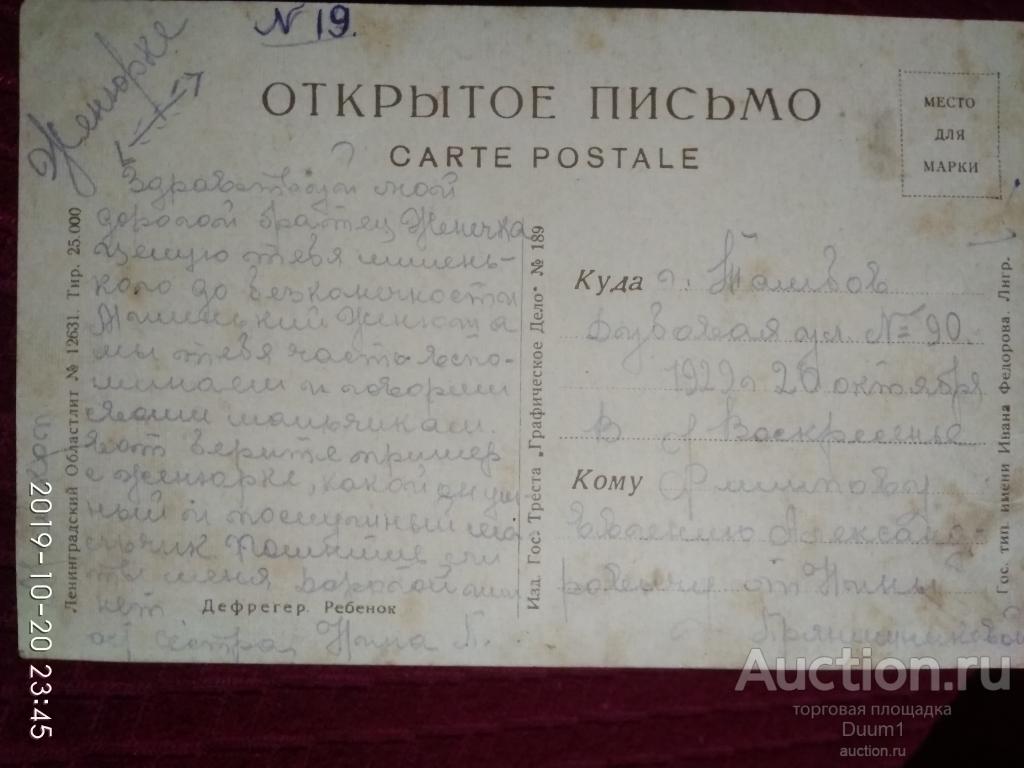 № 19.
Женюрке
ОТКРЫТОЕ ПИСЬМО
CARTE POSTALE
МЕСТО
ДЛЯ
МАРКИ
Здравствуй мой
дорогой братец Женечка
целую тебя милень-
кого до безконечности
Миленький Женюша
мы тебя часто вспо-
минаем и говорим
нашим мальчикам.
Вот берите пример
с Женюрке, какой он ум
ный и послушный ма
льчик Помнише или
ты меня дорогой или
нет
от сестра Нина П.
Дефрегер. Ребенок
Ленинградский Областлит № 12631. Тир. 25.000
Изд. Гос. Треста „Графическое Дело" № 189
Куда г. Тамбов
ул. № 90.
1929 г 20 октября
В Воскресенье
Кому Филиппову
Евгению Александ-
ровичу от Нины
Прянишниковой
Гос. тип. имени Ивана Федорова. Лнгр.
2019-10-20 23:45
Auction.ru
торговая площадка
Duum1
auction.ru